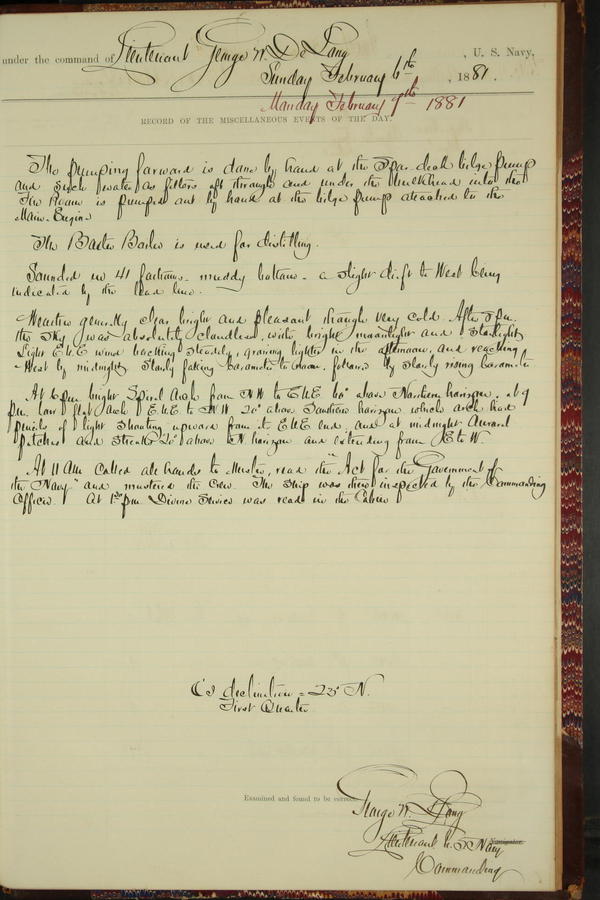 under the command of Lieutenant George W. De Long, U. S. Navy,
Sunday February 6th, 1881.
Monday February 7th 1881
RECORD OF THE MISCELLANEOUS EVENTS OF THE DAY.
The pumping forward is done by hand at the Spar-deck bilge pump
and such water as filters aft through and under the bulkhead into the
Fire Room is pumped out by hand at the bilge pump attached to the
Main Engine
The Baxter Boiler is used for distilling.
Sounded in 41 fathoms - muddy bottom - a slight drift to West being
indicated by the lead line.
Weather generally clear bright and pleasant though very cold. After 3 pm.
the sky was absolutely cloudless, with bright moonlight and starlight
Light E wind backing steadily, growing lighter in the afternoon, and reaching
West by midnight. Slowly falling barometer to noon, followed by slowly rising barometer.
At 6 pm bright Spiral Arch from NW to ENE 60° above Northern horizon, at 9
pm. low flat Arch ENE to NW 20° above Southern horizon which arch had
pencils of light shooting upward from its ENE end, and at midnight Auroral
patches and streaks 20° above N horizon and extending from E to W
At 11 AM called all hands to Muster, read the "Act for the Government of
the Navy" and mustered the Crew. The Ship was then inspected by the Commanding
Officer. At pm Divine Service was read in the Cabin
declination = 23° N.
First Quarter
Examined and found to be correct.
George W. De Long
Lieutenant U.S. Navy
Navigator.
Commanding